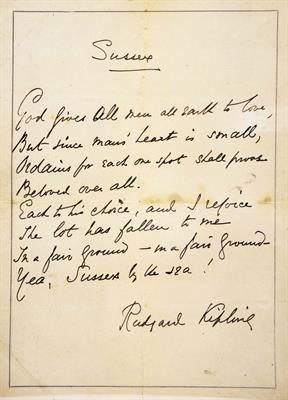 Sussex
God gives All men all Earth to love,
But since man's heart is small,
Ordains for each one spot shall prove
Beloved over all.
Each to his choice, and I rejoice
The lot has fallen to me
In a fair ground – in a fair ground –
Yea, Sussex by the sea!
Rudyard Kipling